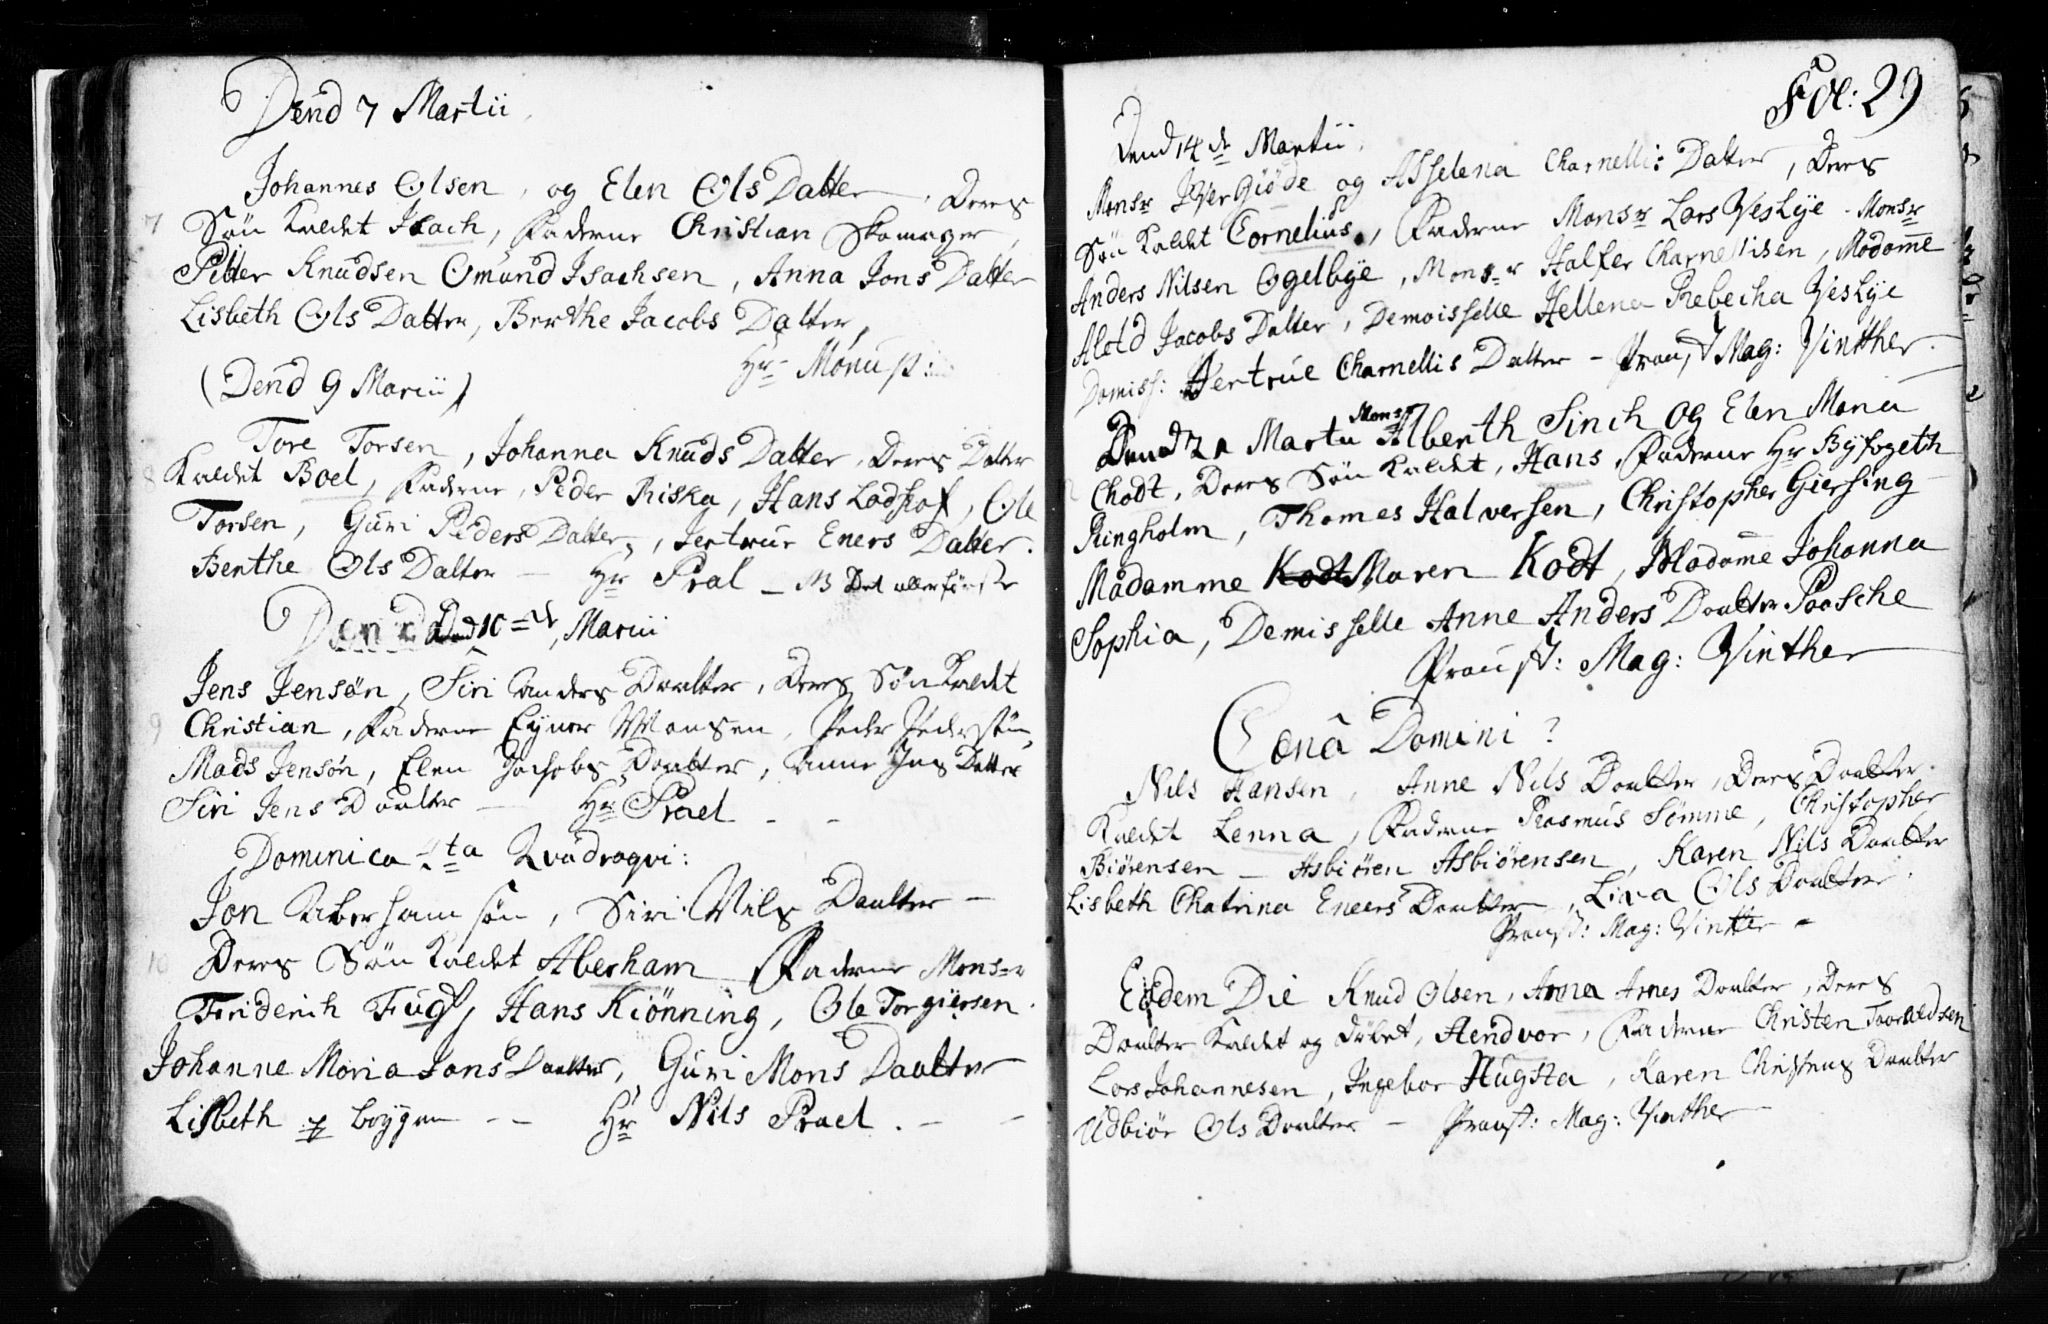 Dend 7 Martii
Johannes Olsen, og Elen Ols Datter, Deres
7 Søn Kaldet Isach, Faderne Christian Skomager,
Pitter Knudsen Omund Isachsen, Anna Jons Datter
Lisbeth Ols Datter, Berthe Jacobs Datter,
Hr Monup
(Dend 9 Marii)
Tore Torsen, Johanna Knuds Datter, Deres Datter
8 Kaldet Boel, Faderne, Peder Riska, Hans Lodhof, Ole
Torsen, Guri Peders Datter, Jertrue Eners Datter.
Benthe Ols Datter — Hr Pral — NB Det allerførste
Dend 10 de, Marii
Jens Jensøn, Siri Anders Daatter, Deres Søn Kaldet
9 Christian, Faderne Eyner Monsen, Peder Pedersøn,
Mads Jensøn, Elen Jachobs Daatter, Anne Jens Datter
Siri Jens Daatter — Hr Prael — -
Dominica 4ta Qvadragvi:
Jon Aberhamsøn, Siri Nils Daatter —
10 Deres Søn Kaldet Aberham Faderne Monsr
Friderich Fugl, Hans Kiønning, Ole Torgiersen.
Johanne Maria Jans Daatter, Guri Mons Daatter
Lisbeth boygen -- Hr Nils Prael. — —
Fol: 29
Dend 14 de Martii,
Monsr Iver Giøde og Asselena Charnellis Datter, Deres
Søn Kaldet Cornelius, Faderne Monsr Lars Veslye. Monsr
Anders Nilsen Ogelbye, Monsr Halfer Charnellisen, Madame
Alotd Jacobs Datter, Demoisselle Hellena Rebecha Veslye
Demiss: Hertrue Charnellis Datter — Proust Mag: Vinther.
Dend 21 Martii Monsr Alberth Sinch og Elen Maria
Chodt, Deres Søn Kaldet, Hans, Faderne Hr Byfogeth
Ringholm, Thomes Halversen, Christopher Giersing
Madamme Kodt Maren Kodt, Madame Johanna
Sophia, Demisselle Anne Anders Daatter Paasche
Proust: Mag: Vinther
Cænâ Domini?
Nils Hansen, Anne Nils Daatter, Deres Daatter.
Kaldet Lenna, Faderne Rasmus Sømme, Christopher
Biørensen — Asbiøren Asbiørensen, Karen Nils Daatter
Lisbeth Chatrina Eneers Daatter, Lixa Ols Daatter.
Proust: Mag: Vintter -
Eodem Die Knud Olsen, Anna Arnes Daatter, Deres
Daatter Kaldet og Døbet, Aendvor, Faderne Christen Taaraldsen
Lars Johannesen, Ingebor Hugsta, Karen Christens Daatter
Udbiør Ols Daatter — Proust: Mag: Vinther